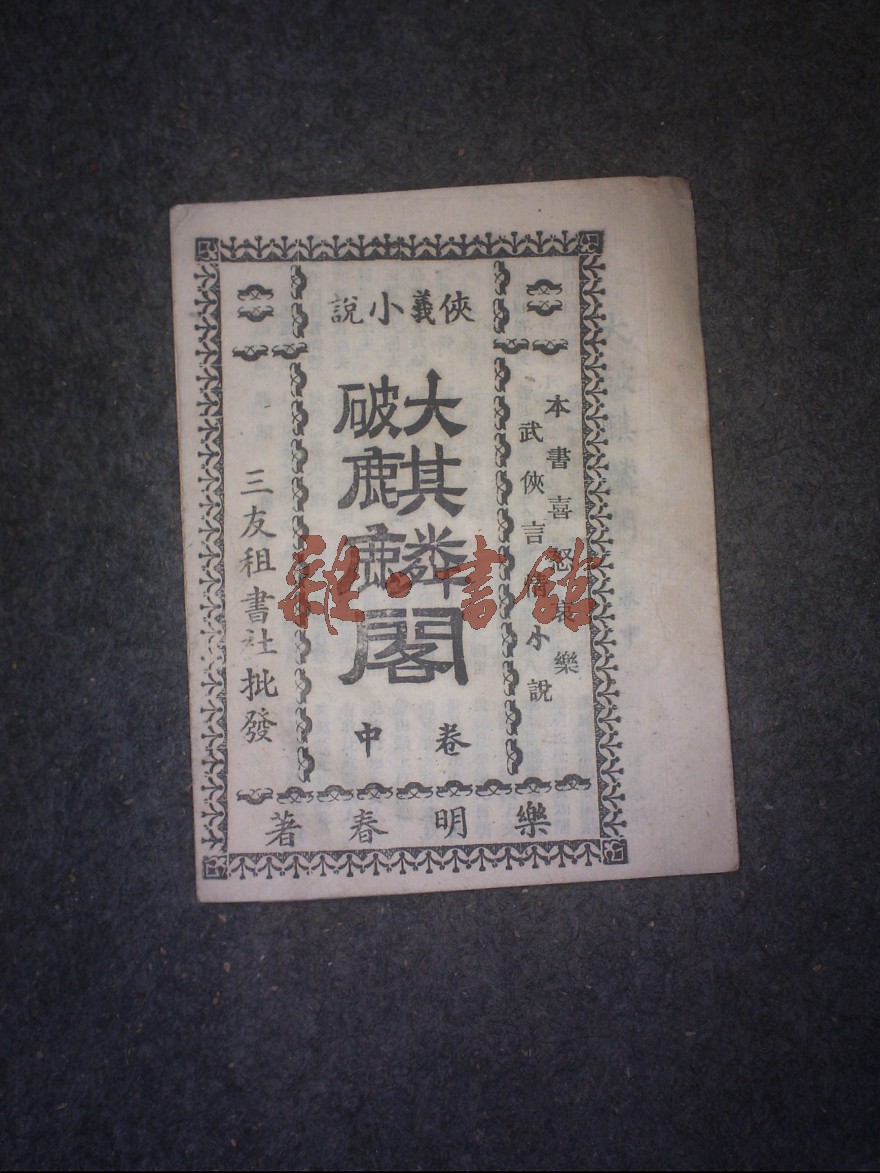 俠義小說
本書喜怒哀樂
武俠言情小說
大破麒麟閣
卷中
三友租書社批發
樂明春著
雜·書館